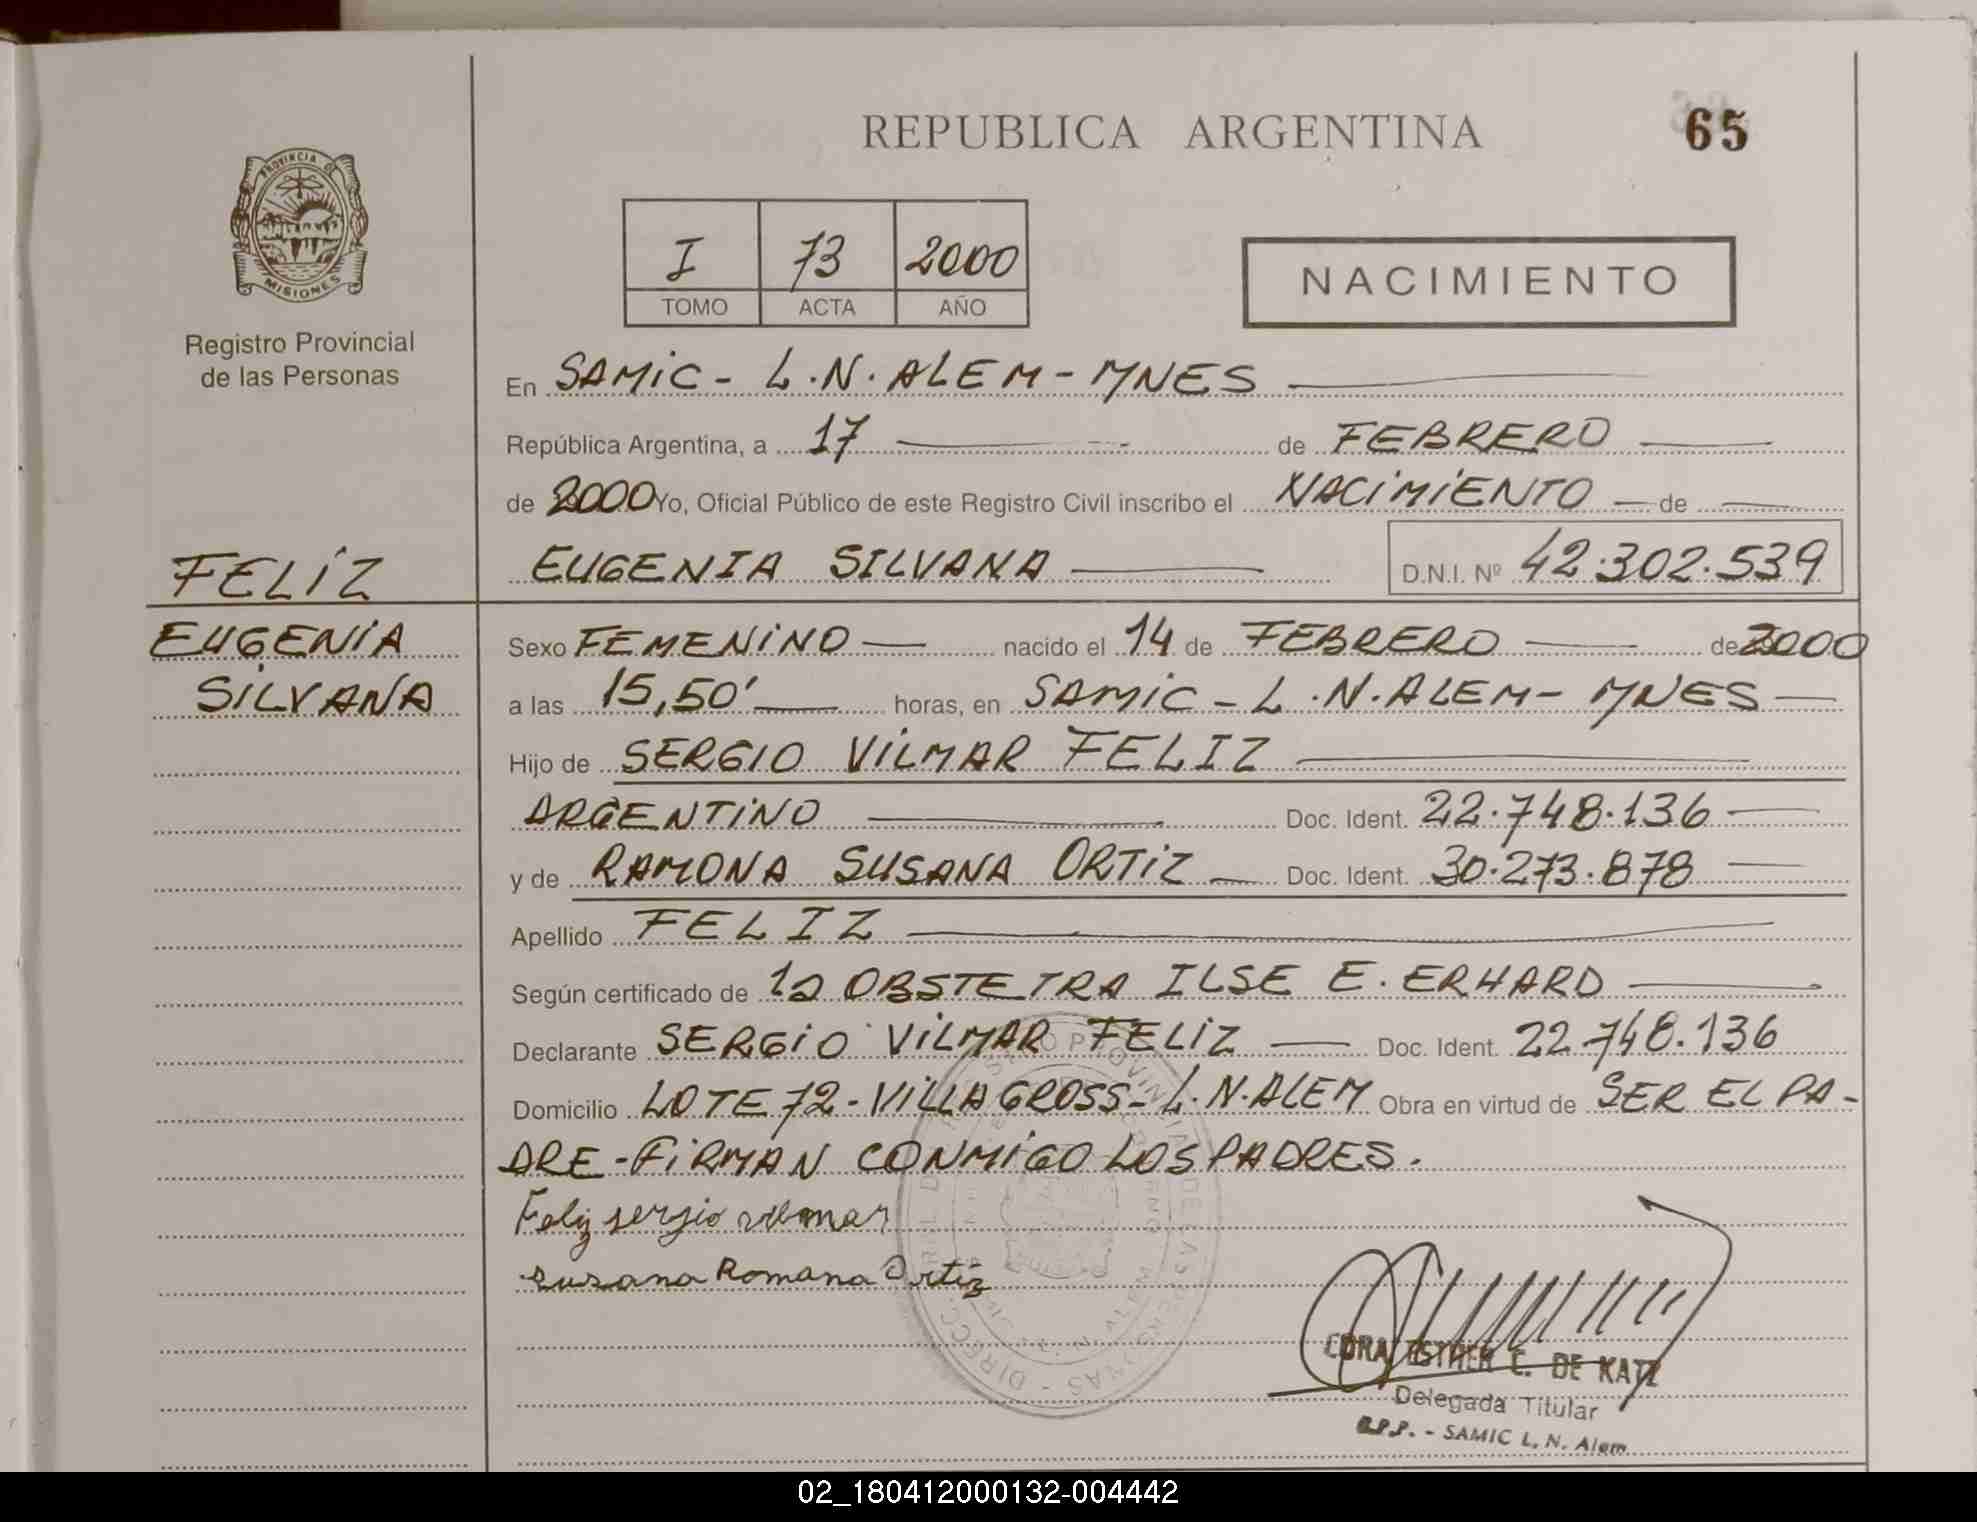 REPUBLICA ARGENTINA
65
PROVINCIA DE
MISIONES
Registro Provincial
de las Personas
I 73 2000
TOMO ACTA AÑO
NACIMIENTO
En SAMIC - L.N. ALEM - MNES
República Argentina, a 17 de FEBRERO
de 2000 Yo, Oficial Público de este Registro Civil inscribo el NACIMIENTO de
EUGENIA SILVANA D.N.I. Nº 42.302.539
FELIZ
EUGENIA
SILVANA
Sexo FEMENINO nacido el 14 de FEBRERO de 2000
a las 15,50' horas, en SAMIC - L.N. ALEM - MNES
Hijo de SERGIO VILMAR FELIZ
ARGENTINO Doc. Ident. 22.748.136
y de RAMONA SUSANA ORTIZ Doc. Ident. 30.273.878
Apellido FELIZ
Según certificado de la OBSTETRA ILSE E. ERHARD
Declarante SERGIO VILMAR FELIZ Doc. Ident. 22.748.136
Domicilio LOTE 72 - VILLA GROSS - L.N. ALEM Obra en virtud de SER EL PA-
DRE - FIRMAN CONMIGO LOS PADRES.
Feliz sergio vilmar
Susana Romana Ortiz
CORA ESTHER C. DE KATZ
Delegada Titular
R.P.P. - SAMIC L. N. Alem
02_180412000132-004442